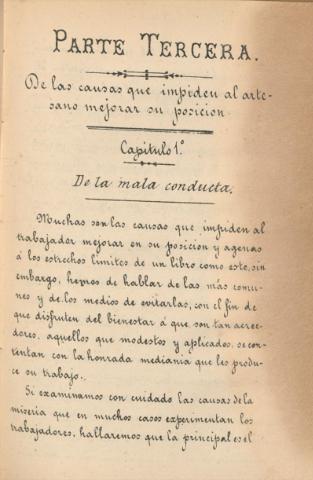 PARTE TERCERA.
De las causas que impiden al arte-
sano mejorar su posicion
Capitulo 1.º
De la mala conducta.
Muchas son las causas que impiden al
trabajador mejorar en su posicion y agenas
á los estrechos limites de un libro como este, sin
embargo, hemos de hablar de las más comu-
nes y de los medios de evitarlas, con el fin de
que disfruten del bienestar á que son tan acree-
dores, aquellos que modestos y aplicados, se con-
tentan con la honrada mediania que les produ-
ce su trabajo.
Si examinamos con cuidado las causas de la
miseria que en muchos casos experimentan los
trabajadores, hallaremos que la principal es el